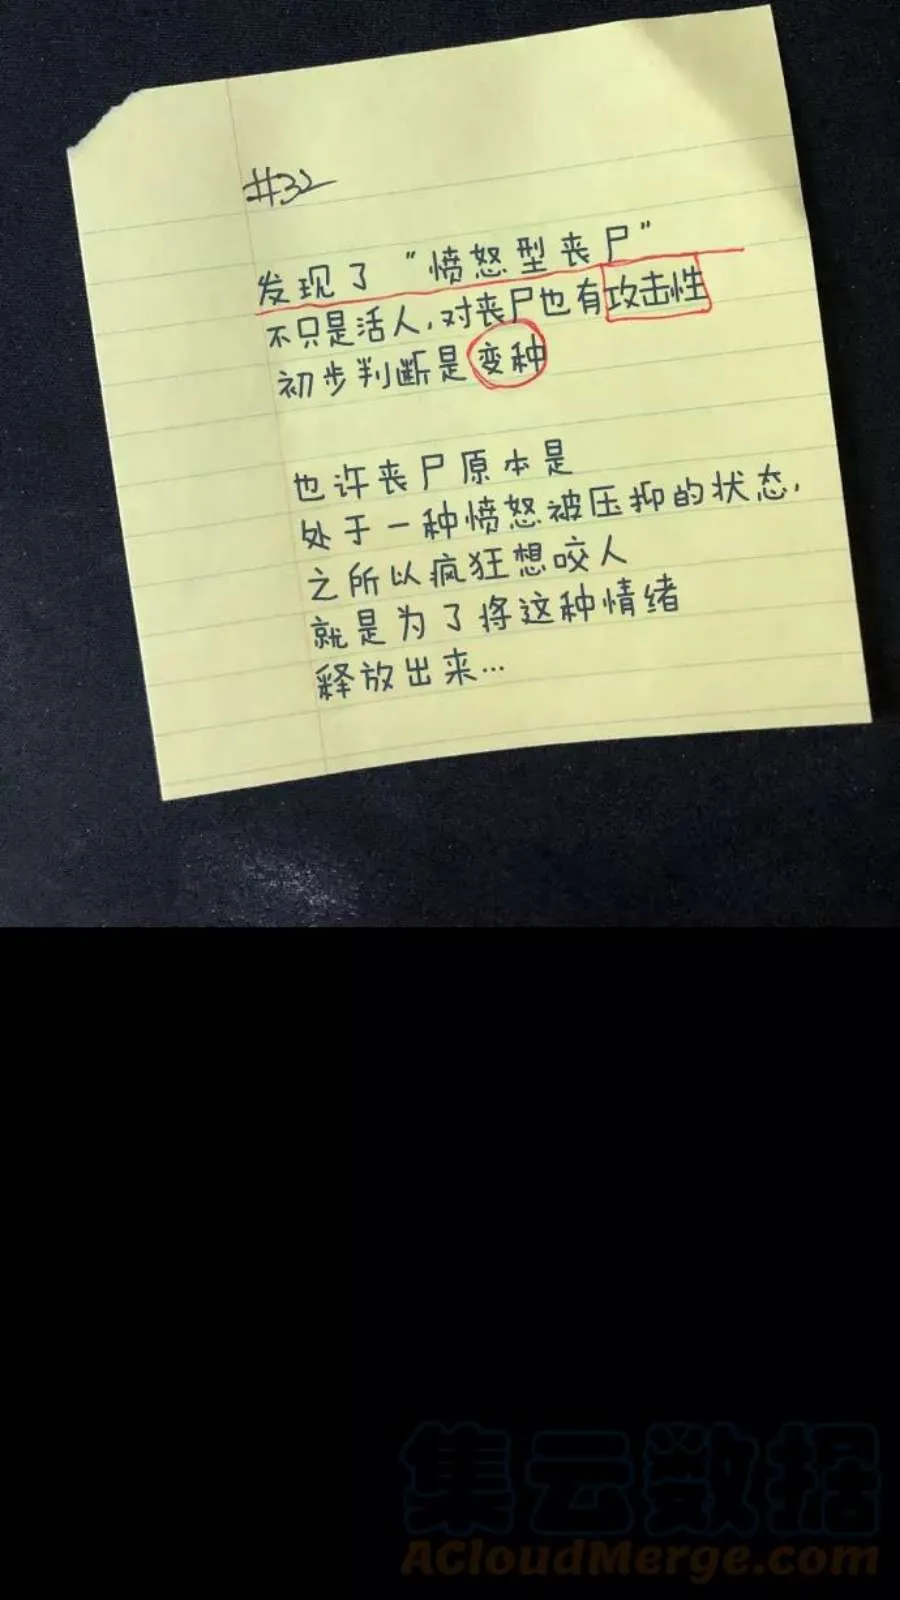 #32
发现了“愤怒型丧尸”
不只是活人,对丧尸也有攻击性
初步判断是变种
也许丧尸原本是
处于一种愤怒被压抑的状态,
之所以疯狂想咬人
就是为了将这种情绪
释放出来...
集云数据
ACloudMerge.com